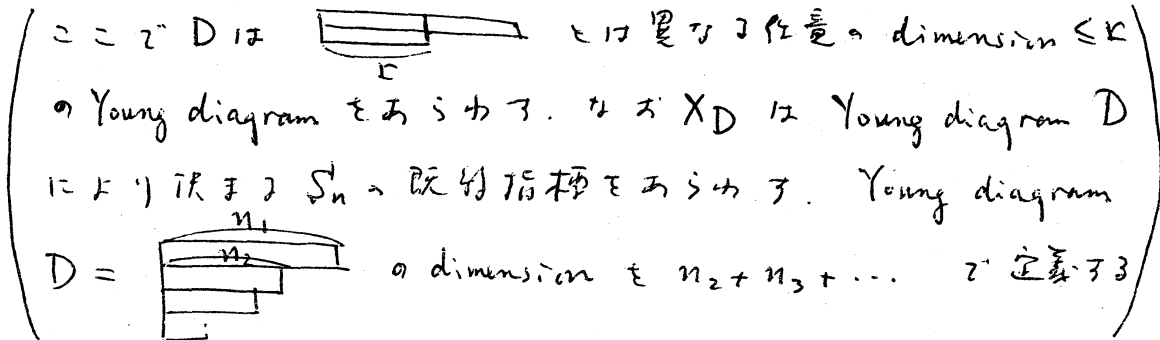 ここで D は とは異なる任意の dimension ≤ k
k
の Young diagram をあらわす. なお X_D は Young diagram D
により決まる S_n の既約指標をあらわす. Young diagram
n_1
n_2
D = の dimension を n_2 + n_3 + ... で定義する